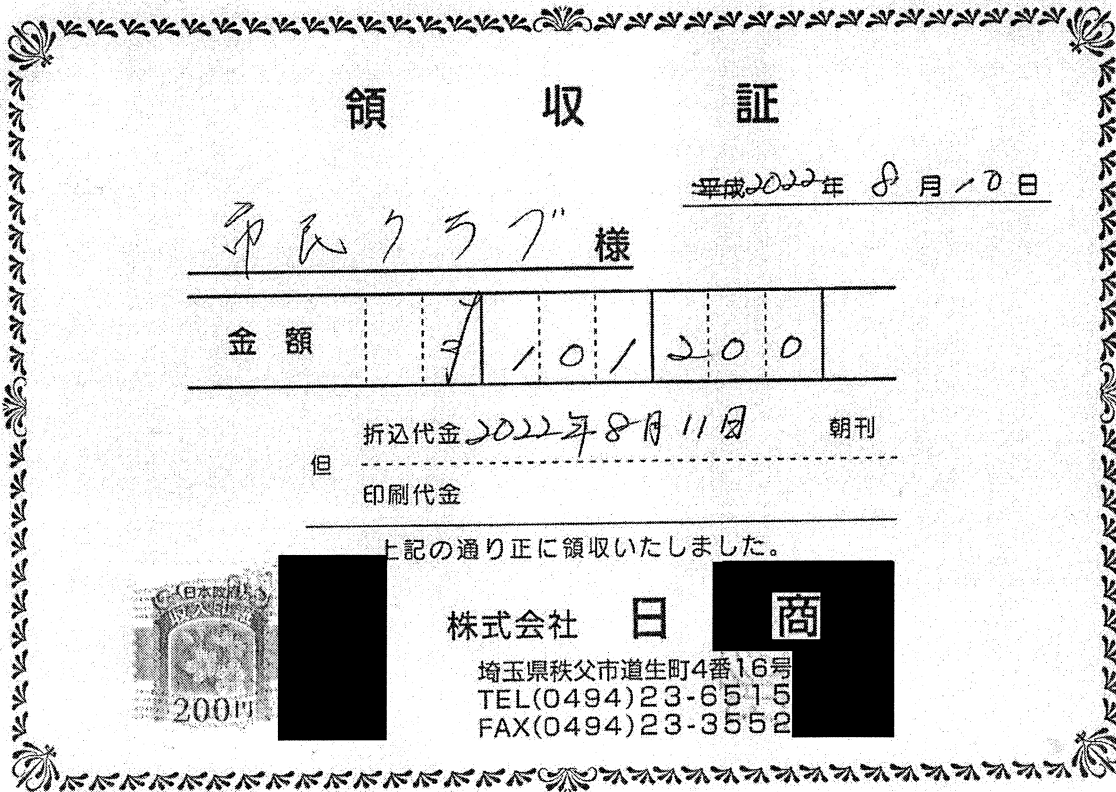 領収証
平成2022年 8月10日
市民クラブ 様
金額 ¥101200
折込代金 2022年8月11日 朝刊
但
印刷代金
上記の通り正に領収いたしました。
日本政府
収入印紙
200円
株式会社 日 商
埼玉県秩父市道生町4番16号
TEL(0494)23-6515
FAX(0494)23-3552